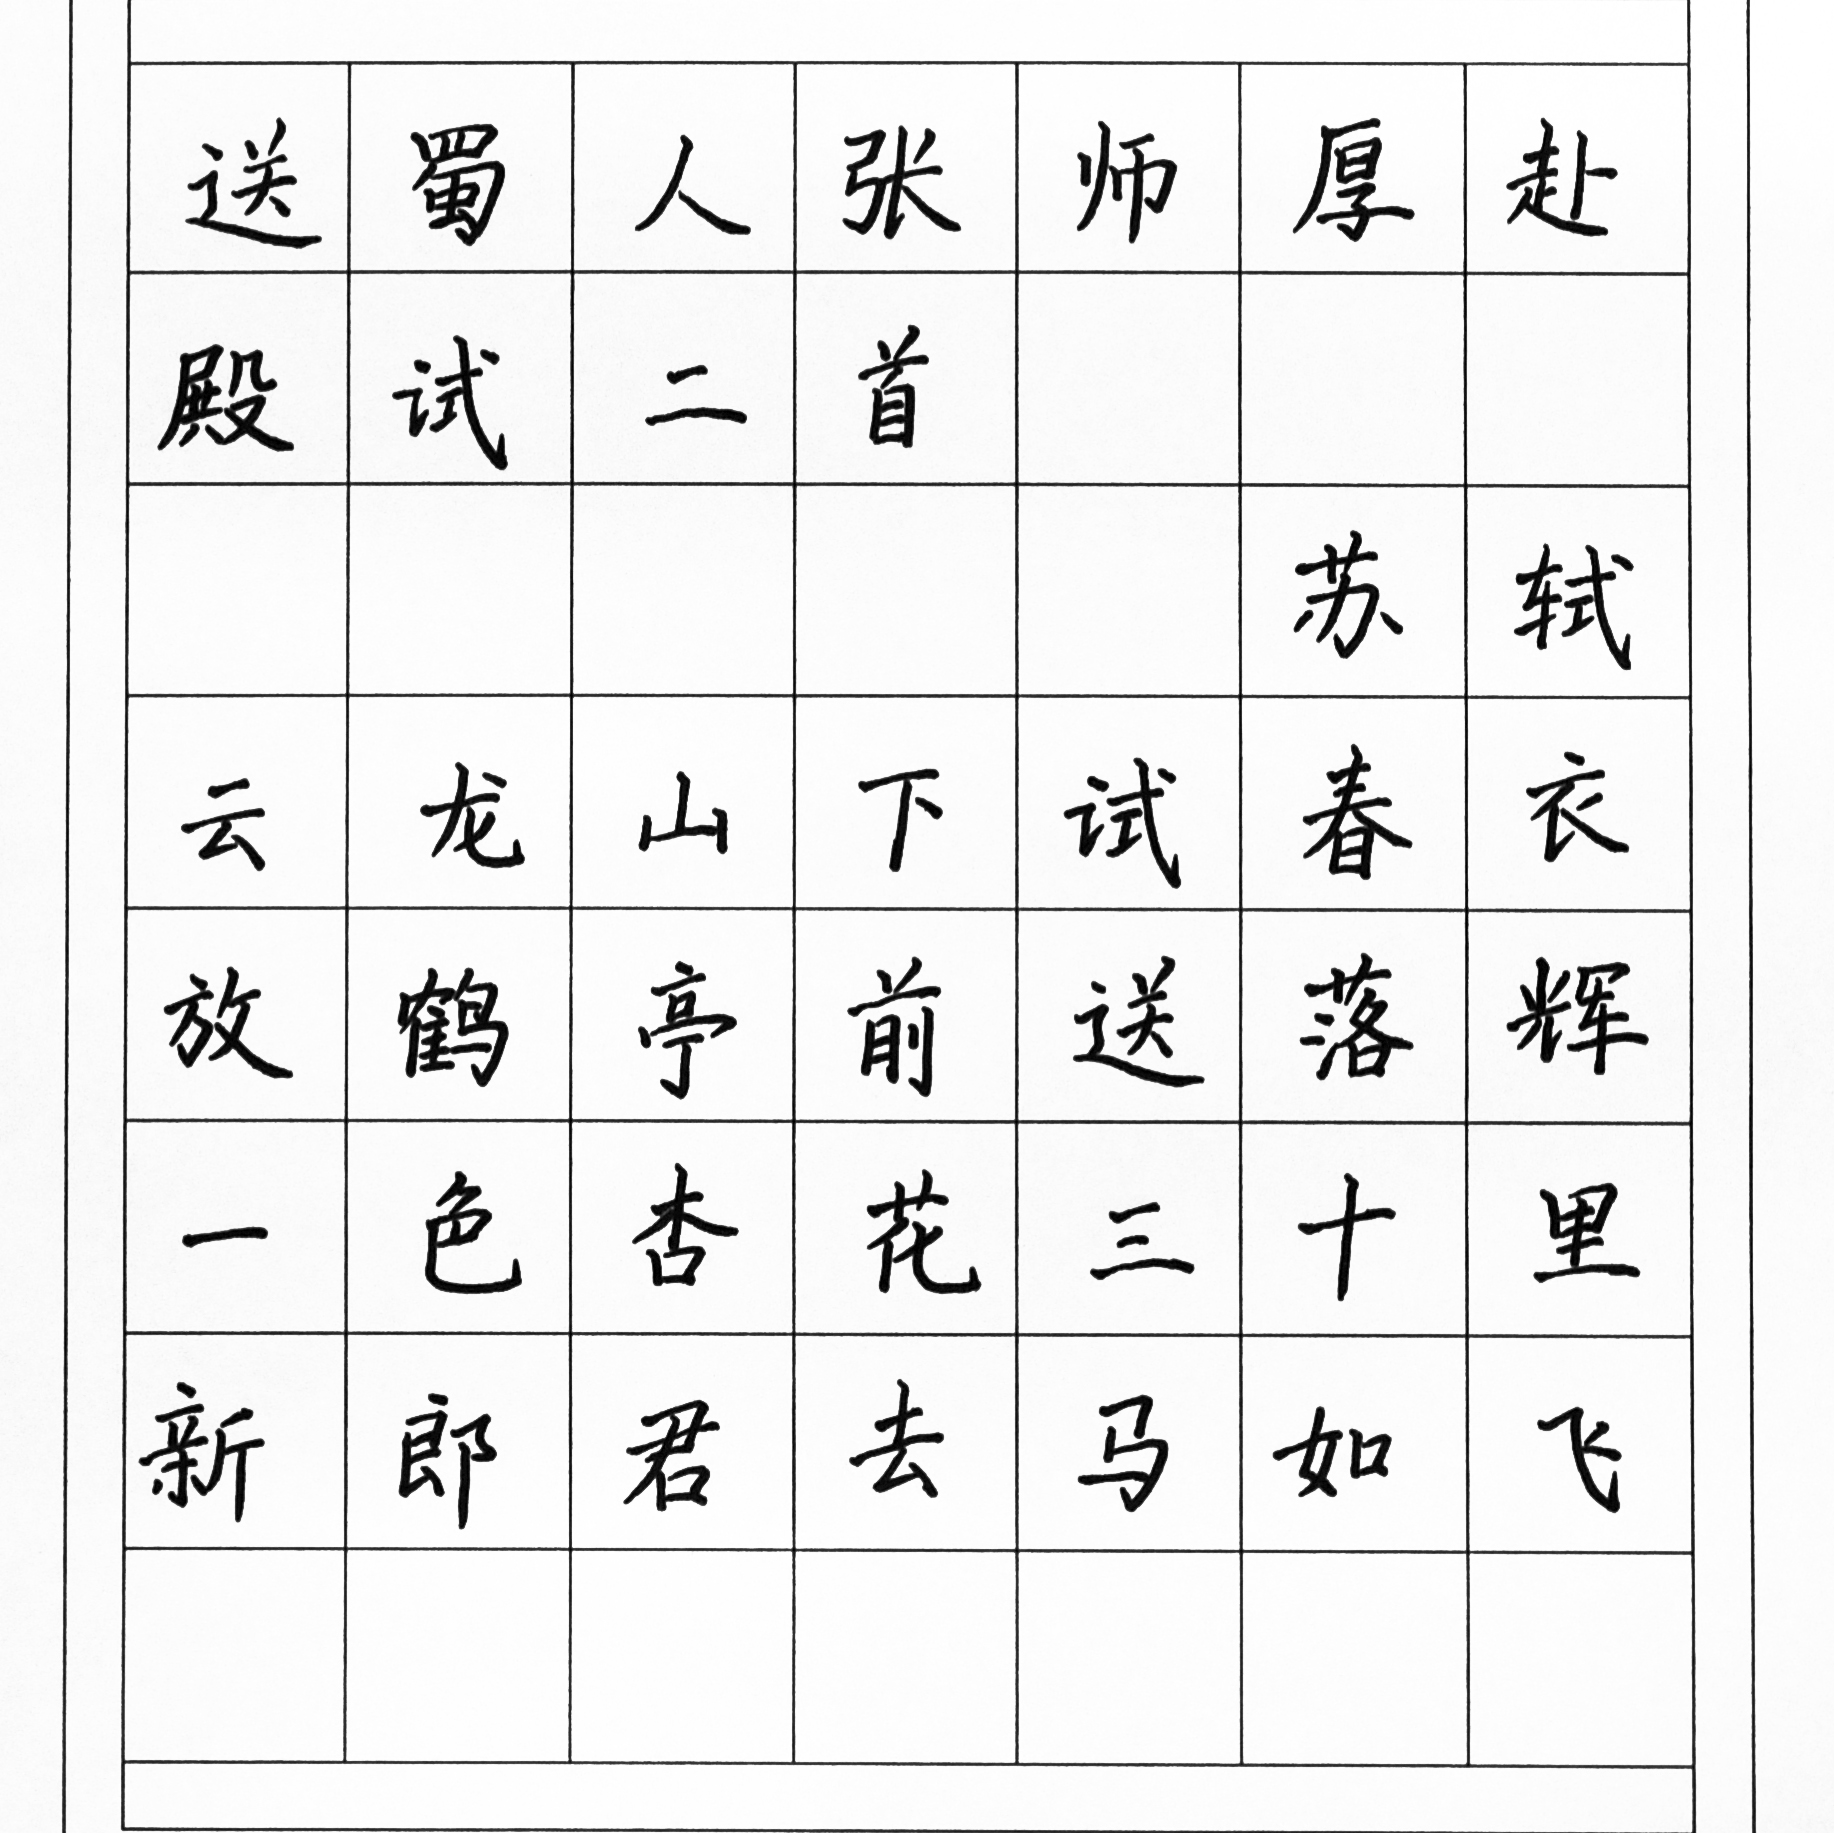 送蜀人张师厚赴
殿试二首
苏轼
云龙山下试春衣
放鹤亭前送落辉
一色杏花三十里
新郎君去马如飞